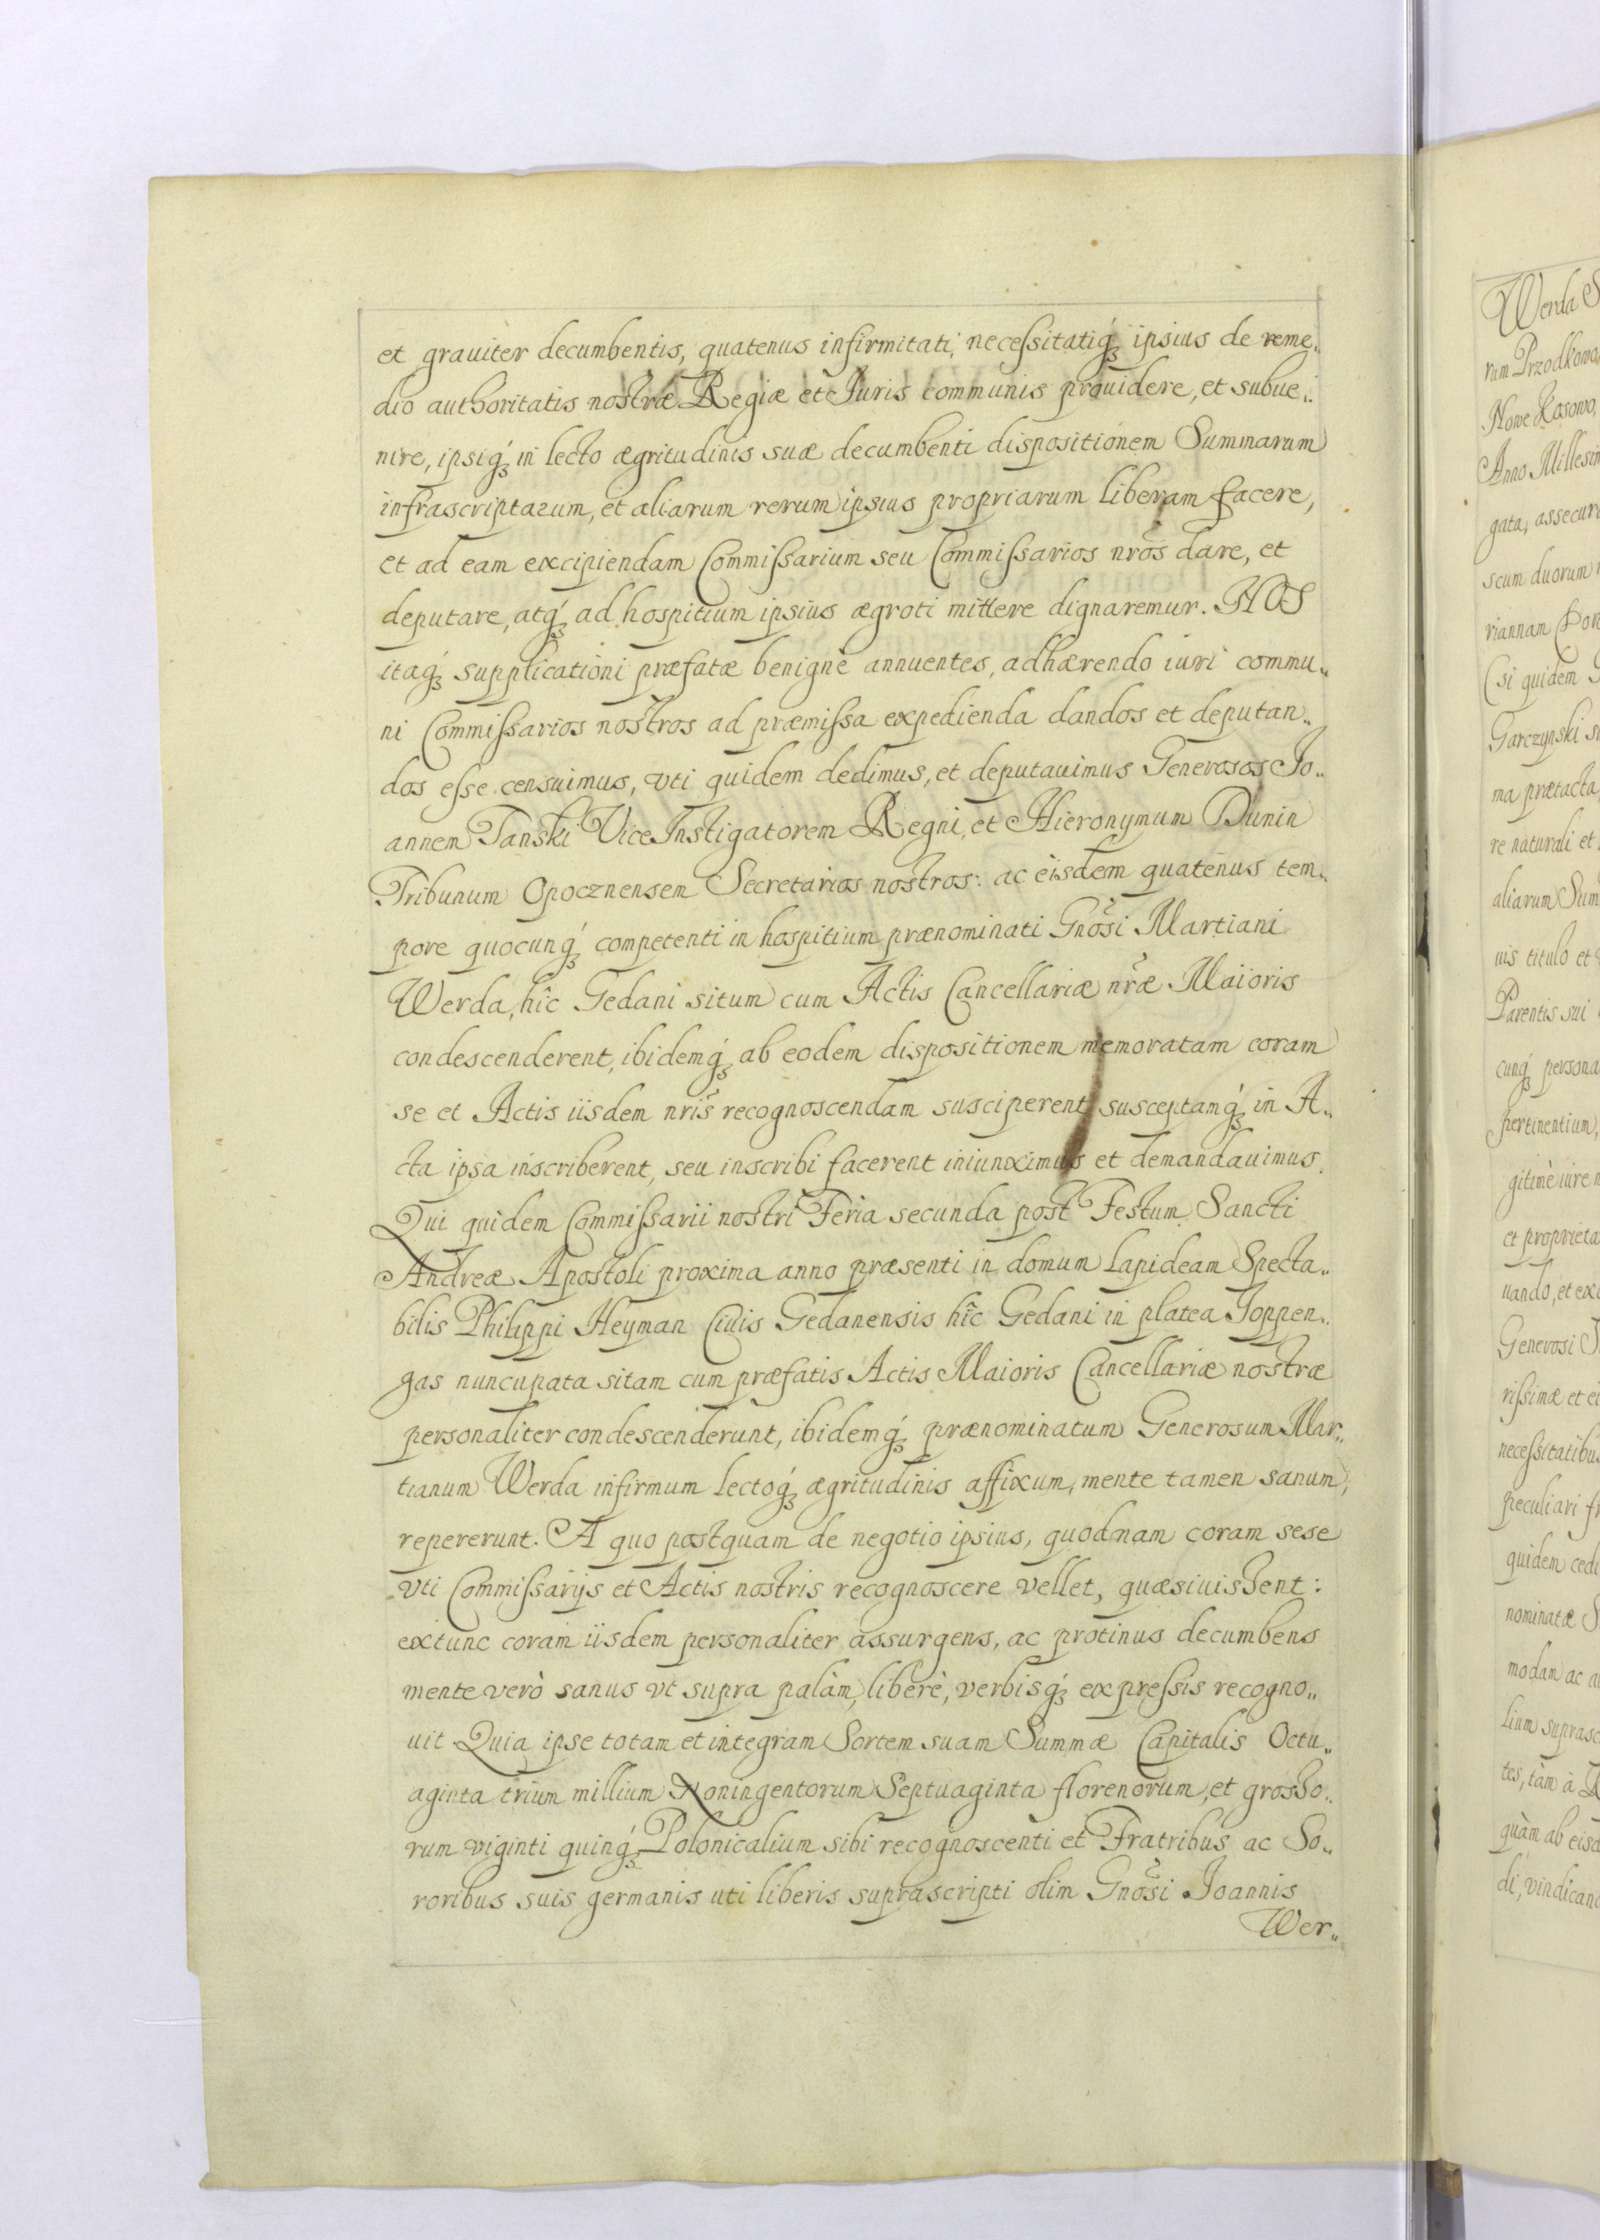 et grauiter decumbentis, quatenus infirmitati, necessitatiq́ꝫ ipsius de reme„
dio authoritatis nostræ Regiæ et Iuris communis prouidere, et subue„
nire, ipsiq́ꝫ in lecto ægritudinis suæ decumbenti dispositionem Summarum
infrascriptarum, et aliarum rerum ipsius propriarum liberam facere,
et ad eam excipiendam Commissarium seu Commissarios nr̃os dare, et
deputare, atq́ꝫ ad hospitium ipsius ægroti mittere dignaremur. NOS
itaq́ꝫ supplicationi præfatæ benigne annuentes, adhærendo iuri commu„
ni Commissarios nostros ad præmissa expedienda dandos et deputan„
dos esse censuimus, vti quidem dedimus, et deputauimus Generosos Io„
annem Tanski Vice Instigatorem Regni, et Hieronymum Dunin
Tribunum Opocznensem Secretarios nostros: ac eisdem quatenus tem„
pore quocunq́ꝫ competenti in hospitium prænominati Gnõsi Martiani
Werda, hic Gedani situm cum Actis Cancellariæ nr̃æ Maioris
condescenderent, ibidemq́ꝫ ab eodem dispositionem memoratam coram
se et Actis iisdem nr̃is recognoscendam susciperent, susceptamq́ꝫ in A„
cta ipsa inscriberent, seu inscribi facerent iniunximus et demandauimus.
Qui quidem Commissarii nostri Feria secunda post Festum Sancti
Andreæ Apostoli proxima anno præsenti in domum lapideam Specta„
bilis Philippi Heyman Ciuis Gedanensis hic Gedani in platea Ioppen„
gas nuncupata sitam cum præfatis Actis Maioris Cancellariæ nostræ
personaliter condescenderunt, ibidemq́ꝫ prænominatum Generosum Mar„
tianum Werda infirmum lectoq́ꝫ ægritudinis affixum, mente tamen sanum,
repererunt. A quo postquam de negotio ipsius, quodnam coram sese
vti Commissarijs et Actis nostris recognoscere vellet, quæsiuissent:
extunc coram iisdem personaliter assurgens, ac protinus decumbens
mente verò sanus vt supra palàm, liberè, verbisq́ꝫ expressis recogno„
uit Quia ipse totam et integram Sortem suam Summæ Capitalis Octu„
aginta trium millium Noningentorum Septuaginta florenorum, et grosso„
rum viginti quinq́ꝫ Polonicalium sibi recognoscenti et Fratribus ac So„
roribus suis germanis uti liberis suprascripti olim Gnõsi Ioannis
Wer„
Werda
rum Przodkowo
Nowe Kosowo,
Anno Millesim
gata, assecur
scum duorum
riannam
(si quidem
Garczynski
ma prætacta
re naturali et
aliarum Sum
nis titulo et
Parentis sui
cunq́ꝫ persona
pertinentium,
gitimè iure
et proprieta
uando, et ex
Generosi
rissimæ et ei
necessitatibus
peculiari fr
quidem cedi
nominatæ S
modam ac
lium suprasc
tes, tàm à
quàm ab eisd
di, vindican